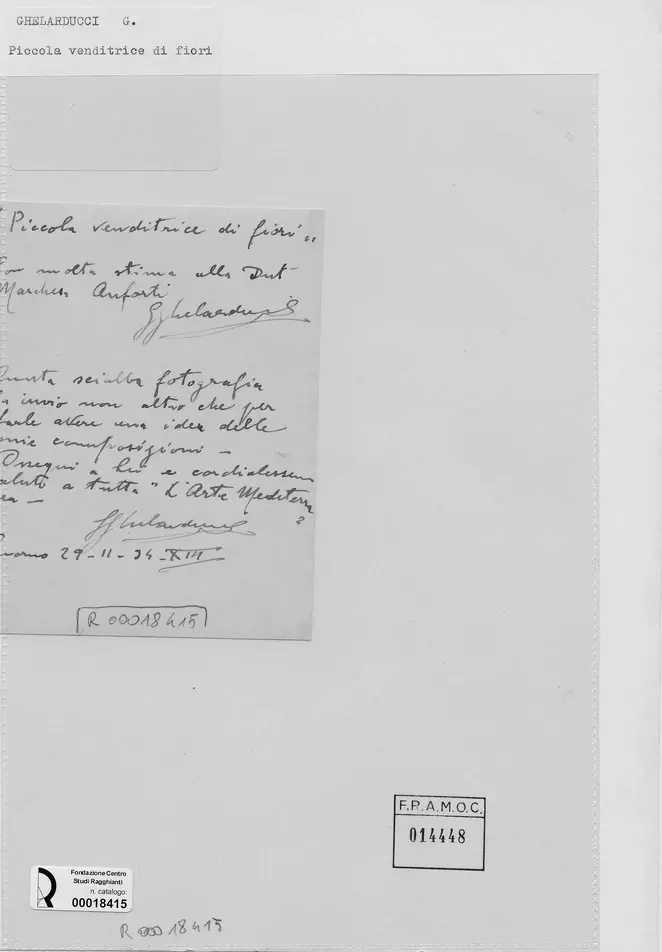 GHELARDUCCI G.
Piccola venditrice di fiori
"Piccola venditrice di fiori"
molta stima alla Dut
Marchesa Anforti
GGhelarducci
scialba fotografia
invio non altro che per
farle avere una idea delle
mie composizioni -
Ossequi a Lei e cordialissimi
saluti a tutta "L'Arte Mediterra
nea -
"
GGhelarducci
29-11-34-XIII
R 00018415
F.R.A.M.O.C.
014448
Fondazione Centro
Studi Ragghianti
n. catalogo:
00018415
R 00018415